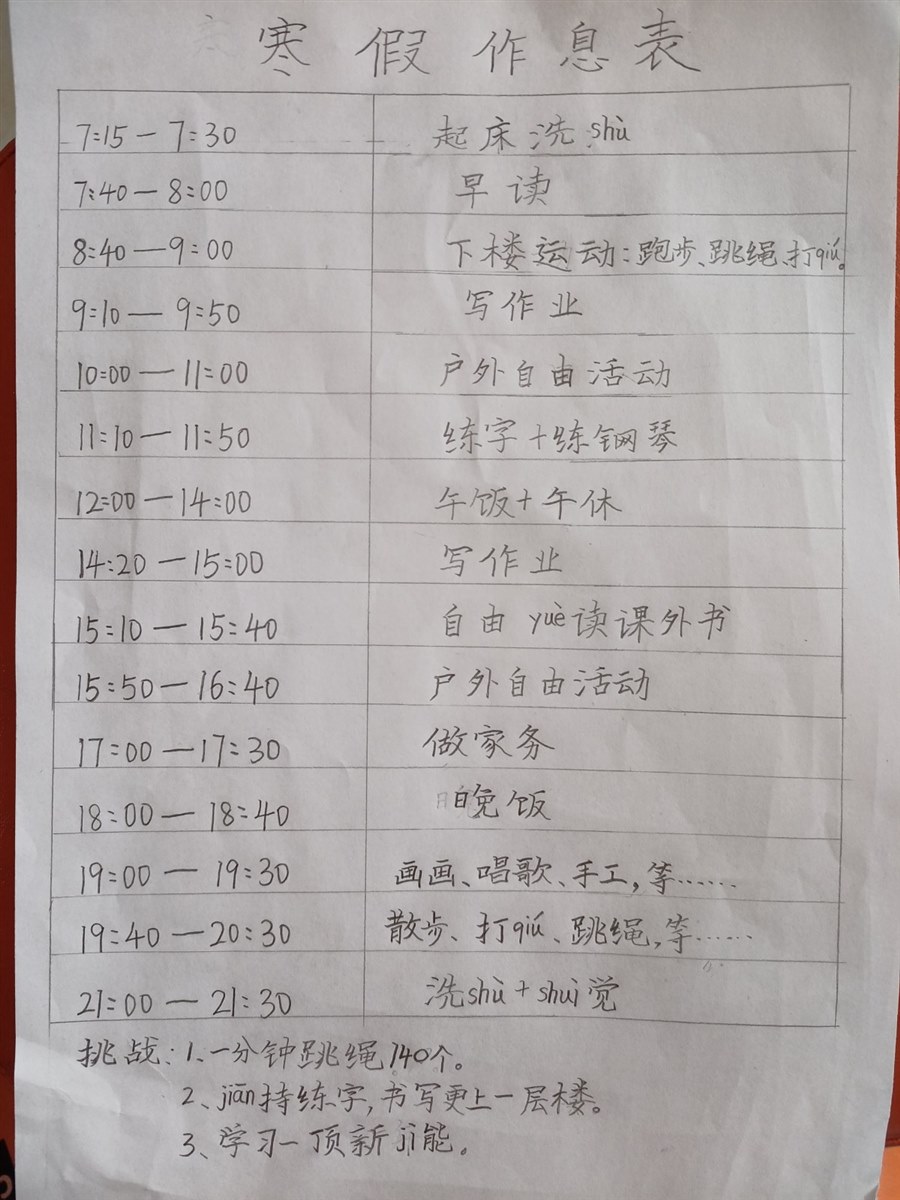 寒假作息表
7:15 — 7:30 起床洗shù
7:40 — 8:00 早读
8:40 — 9:00 下楼运动:跑步、跳绳、打qiú。
9:10 — 9:50 写作业
10:00 — 11:00 户外自由活动
11:10 — 11:50 练字+练钢琴
12:00 — 14:00 午饭+午休
14:20 — 15:00 写作业
15:10 — 15:40 自由yuè读课外书
15:50 — 16:40 户外自由活动
17:00 — 17:30 做家务
18:00 — 18:40 晚饭
19:00 — 19:30 画画、唱歌、手工,等……
19:40 — 20:30 散步、打qiú、跳绳,等……
21:00 — 21:30 洗shù+shuì觉
挑战:1、一分钟跳绳140个。
2、jiān持练字,书写更上一层楼。
3、学习一顶新jì能。